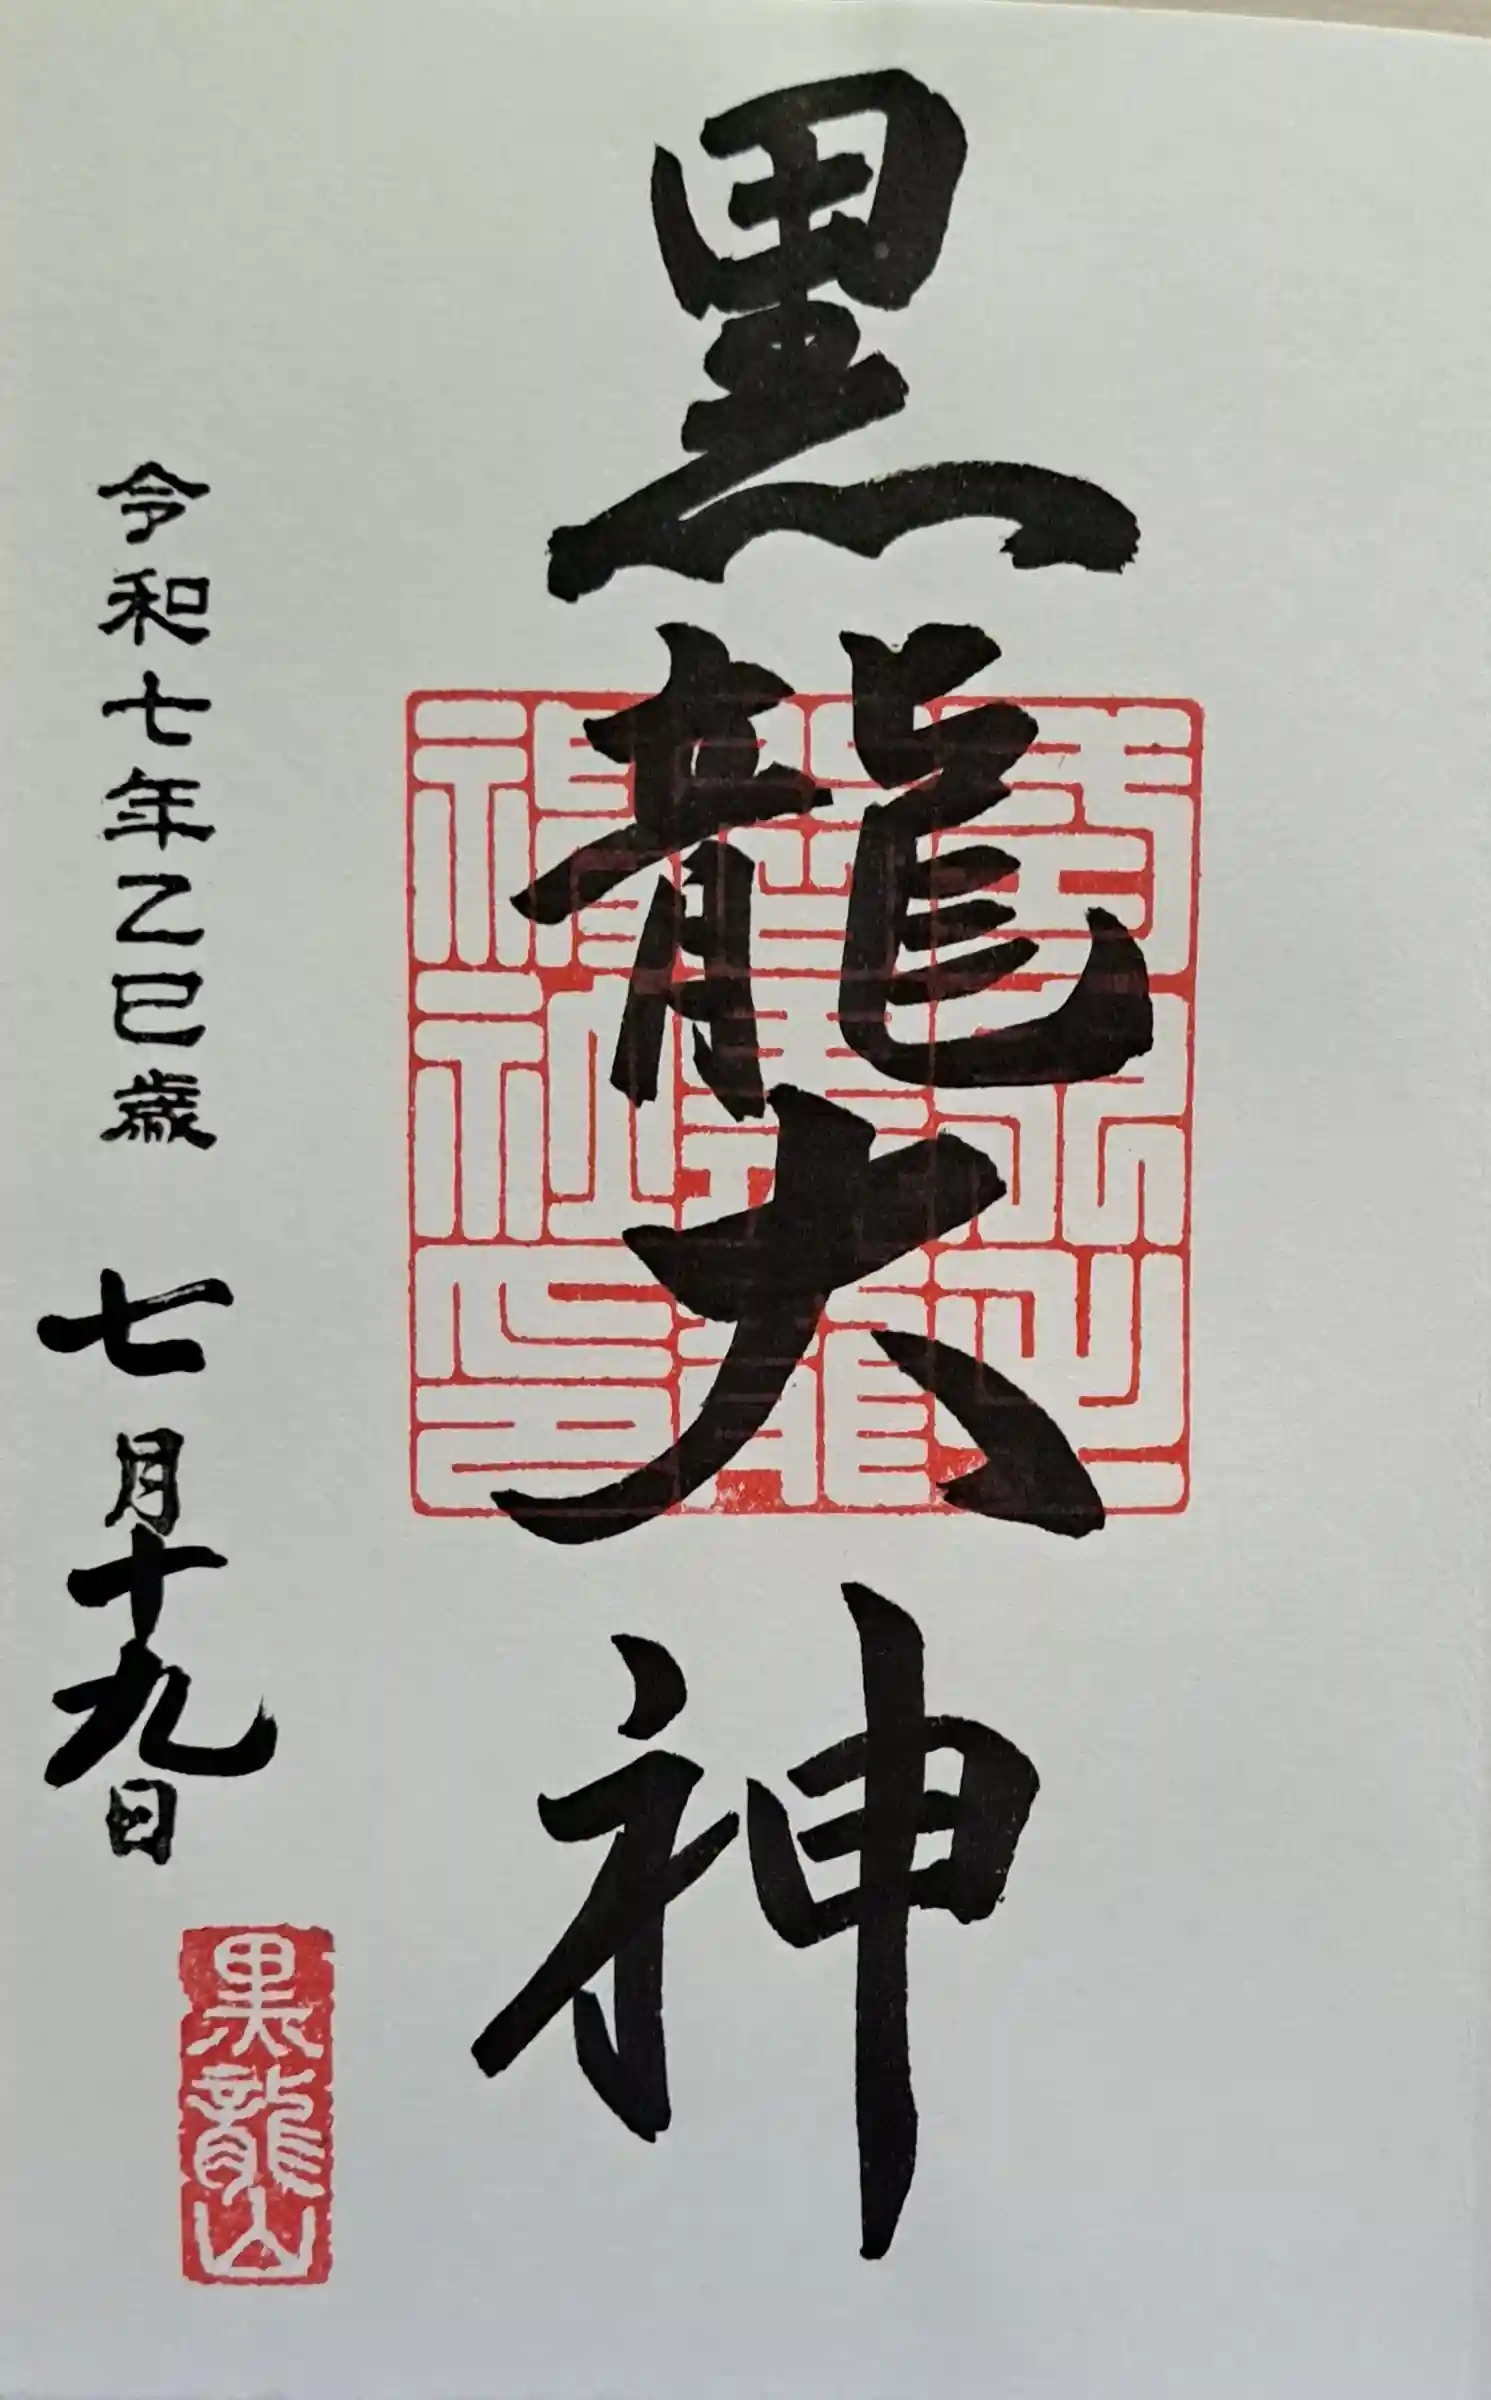 黒龍大神
令和七年乙巳歳 七月十九日
黒龍山